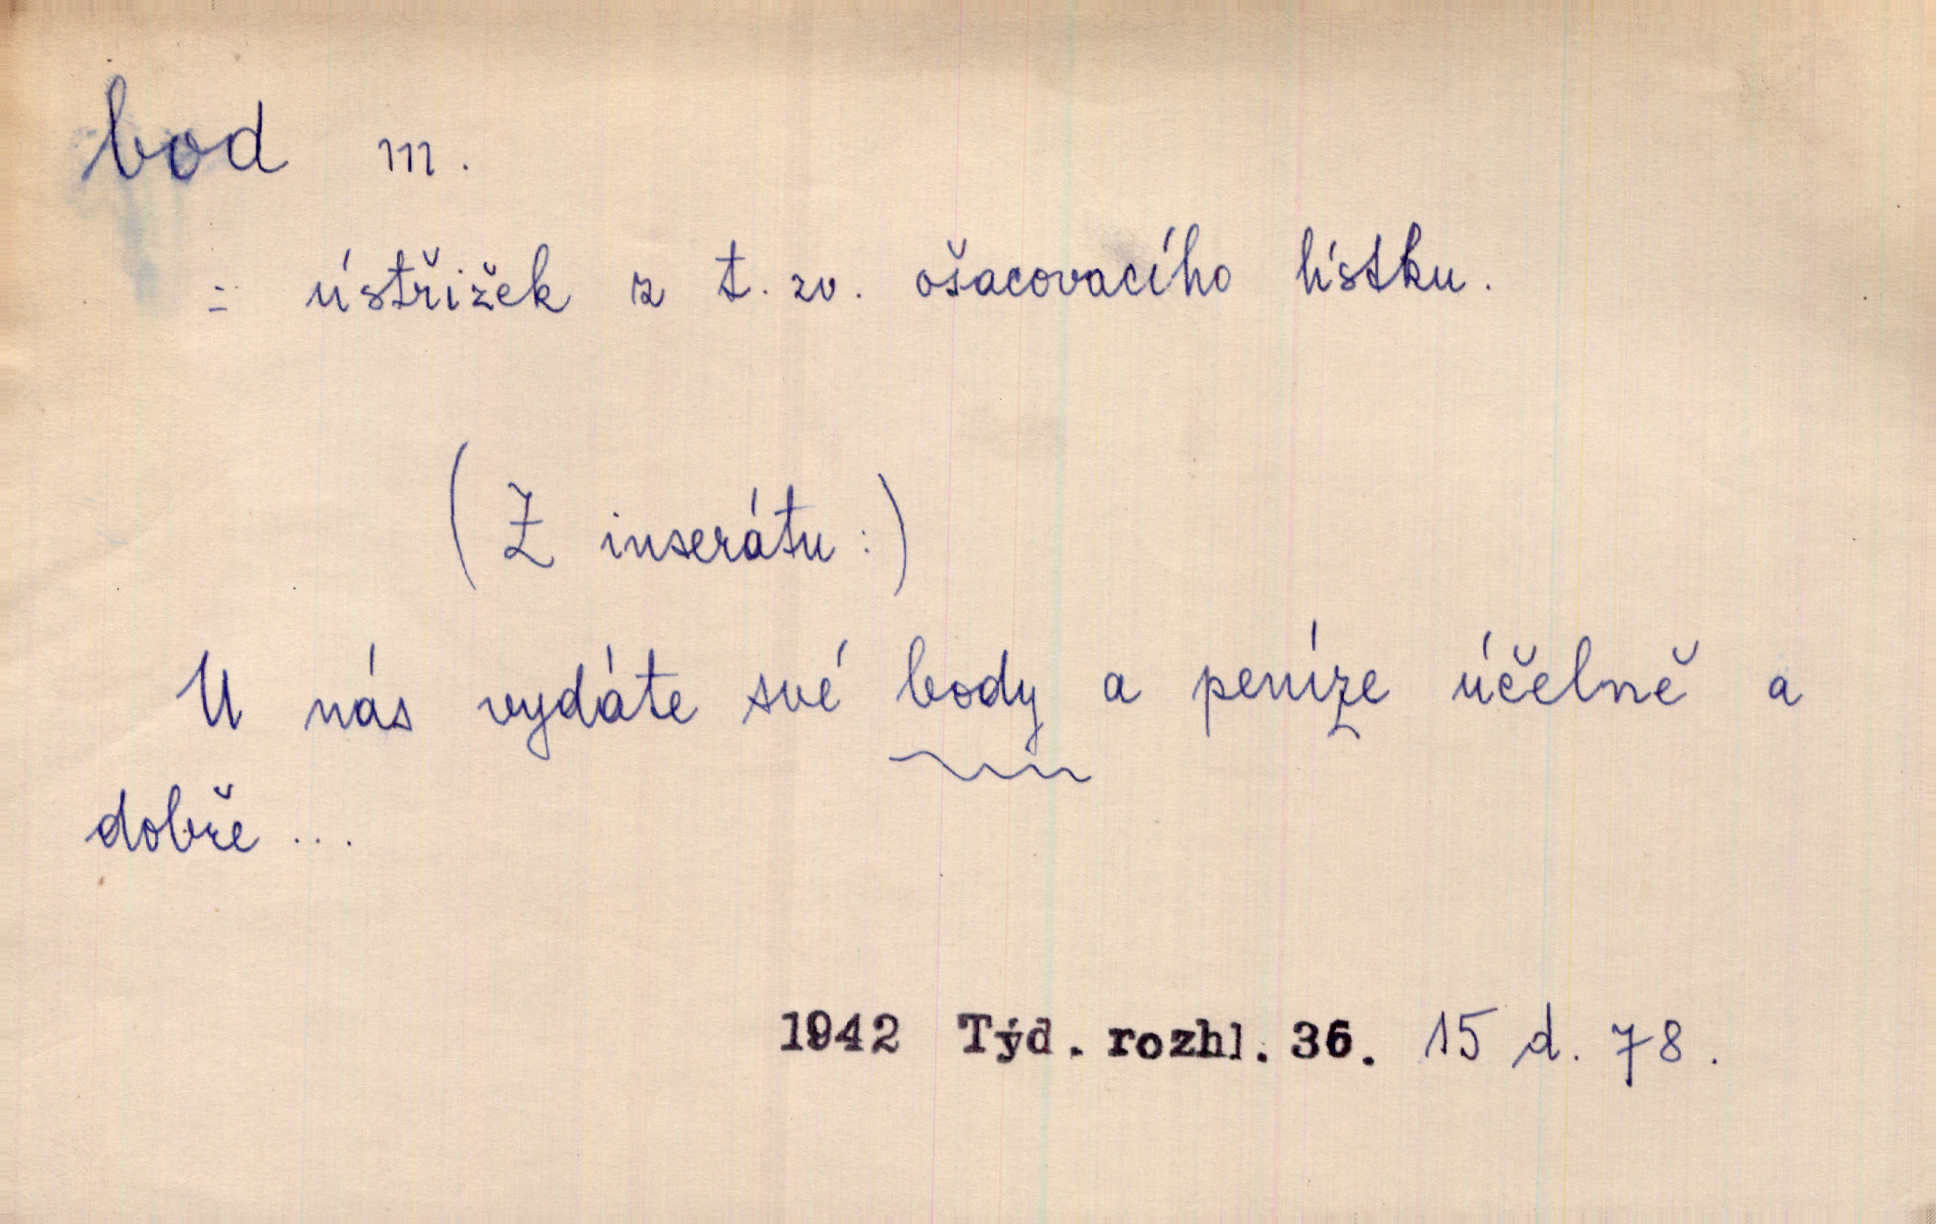 bod m.
= ústřižek z t. zv. ošacovacího lístku.
(Z inserátu:)
U nás vydáte své body a peníze účelně a
dobře ...
1942 Týd. rozhl. 36. 15 d. 78.